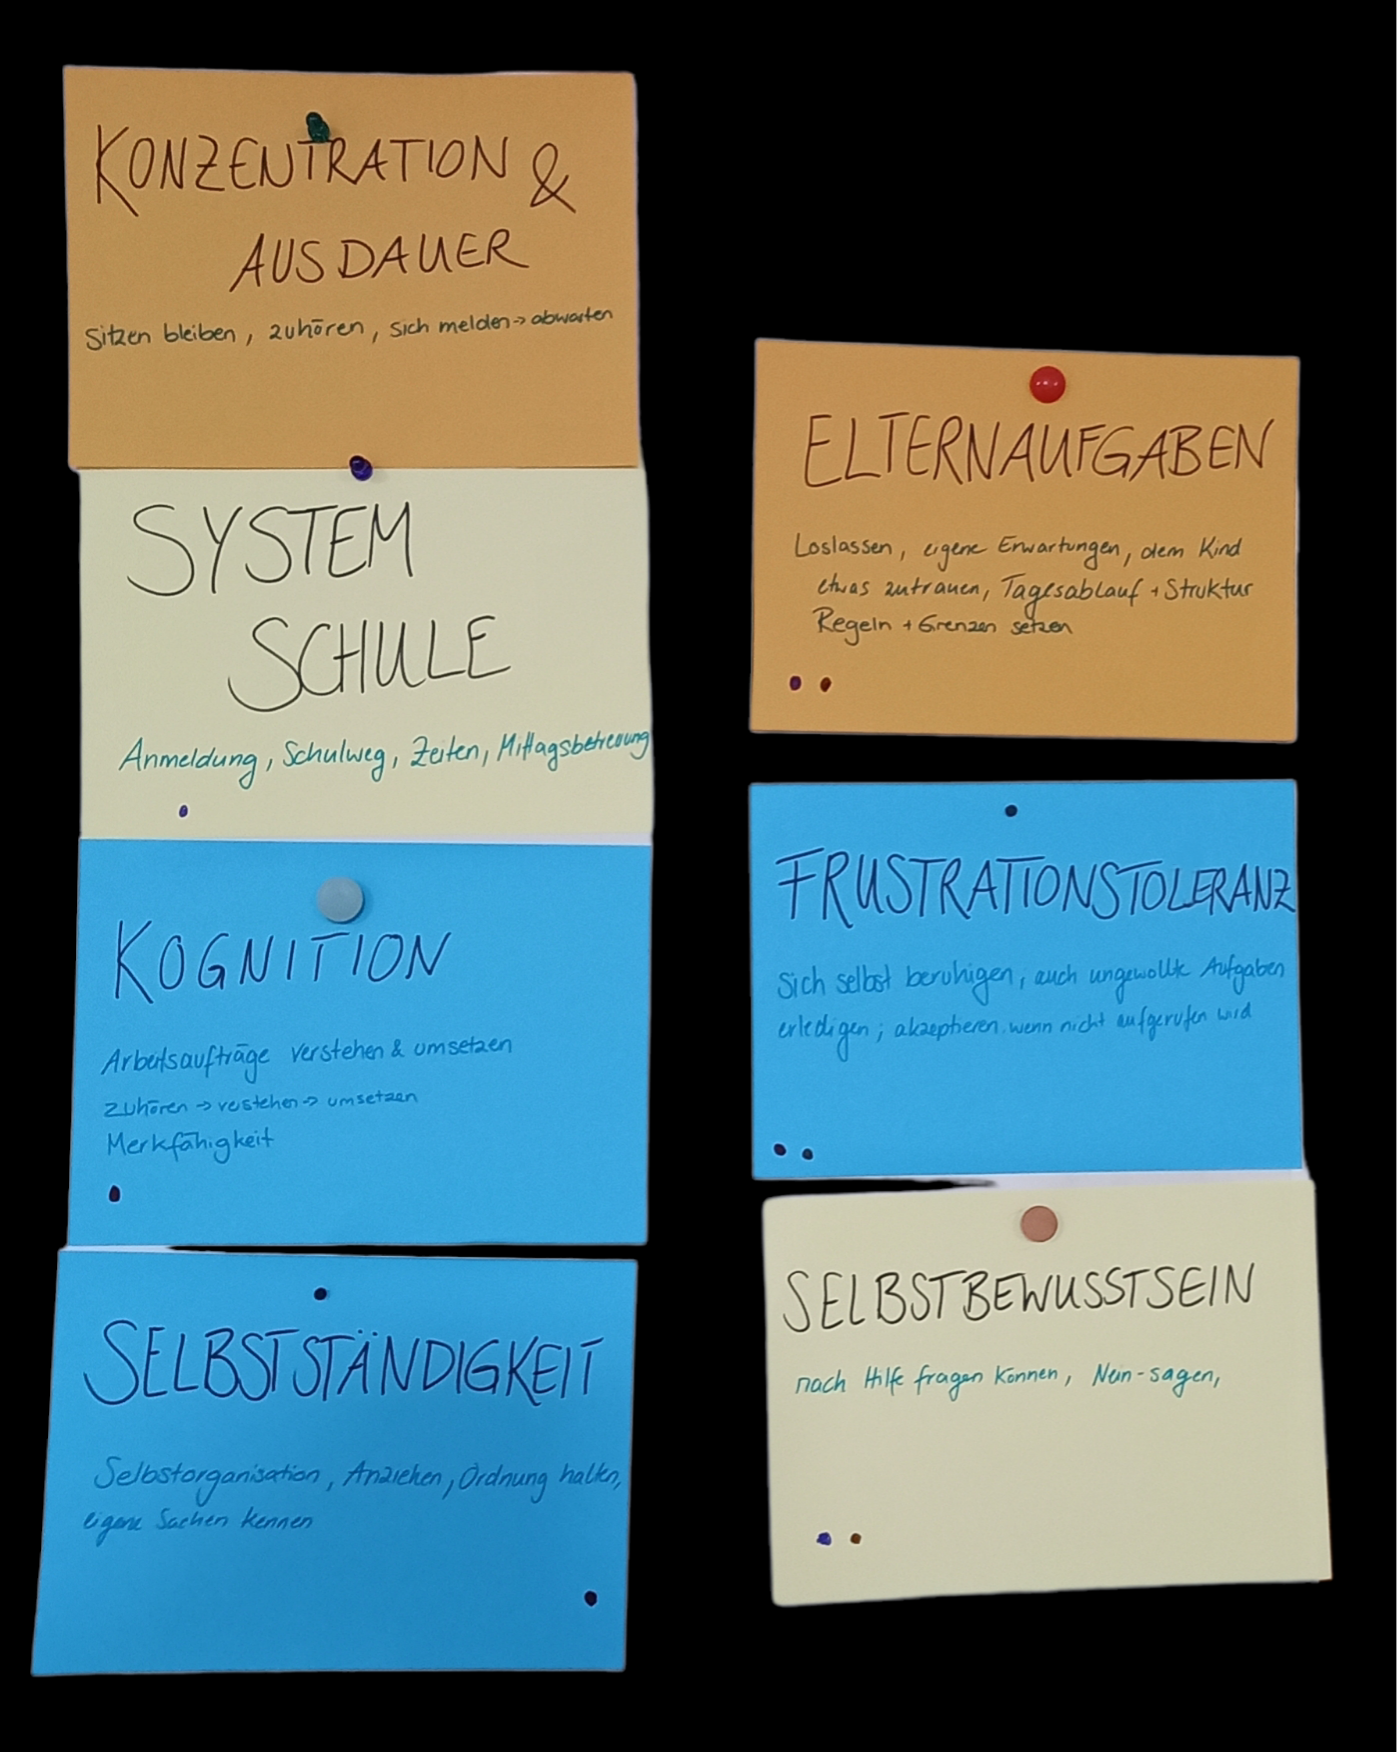 KONZENTRATION &
AUSDAUER
Sitzen bleiben, zuhören, sich melden → abwarten
SYSTEM
SCHULE
Anmeldung, Schulweg, Zeiten, Mittagsbetreuung
KOGNITION
Arbeitsaufträge verstehen & umsetzen
zuhören → verstehen → umsetzen
Merkfähigkeit
SELBSTSTÄNDIGKEIT
Selbstorganisation, Anziehen, Ordnung halten,
eigene Sachen kennen
ELTERNAUFGABEN
Loslassen, eigene Erwartungen, dem Kind
etwas zutrauen, Tagesablauf + Struktur
Regeln + Grenzen setzen
FRUSTRATIONSTOLERANZ
Sich selbst beruhigen, auch ungewollte Aufgaben
erledigen; akzeptieren, wenn nicht aufgerufen wird
SELBSTBEWUSSTSEIN
nach Hilfe fragen können, Nein-sagen,